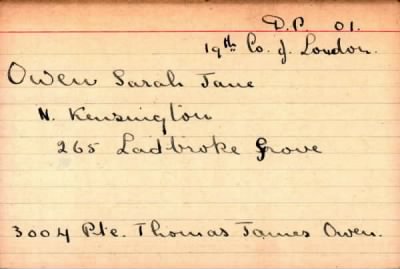 D.P. 01.
19th Co. of London.
Owen Sarah Jane
N. Kensington
265 Ladbroke Grove
3004 Pte. Thomas James Owen.